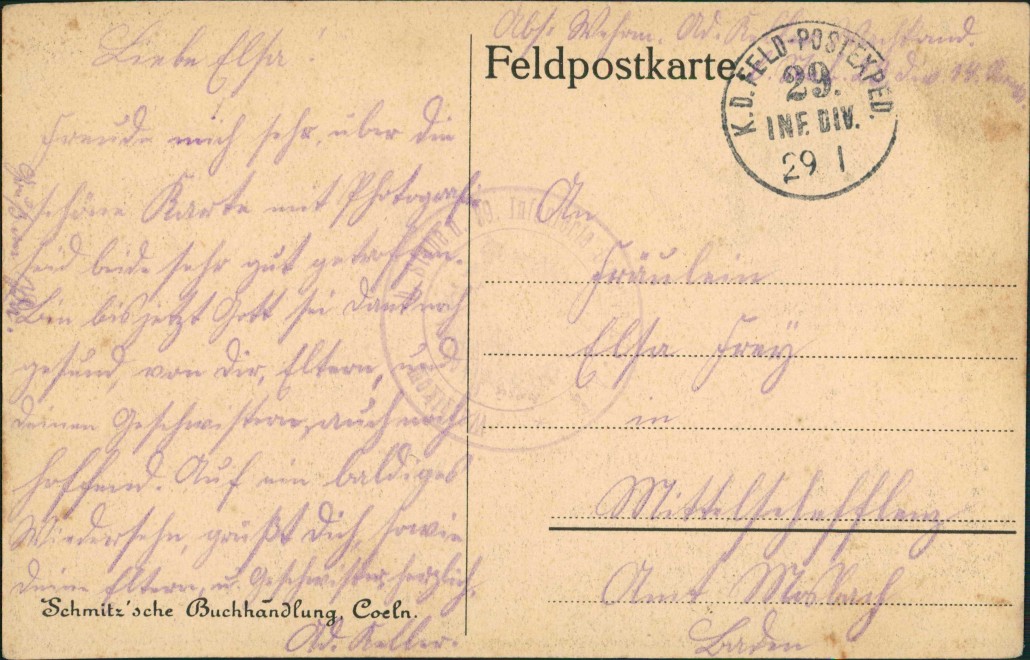 Liebe Elsa!
Freude mich sehr, über die
schöne Karte mit Photografi
seid beide sehr gut getroffen.
Bin bis jetzt Gott sei Dank noch
gesund, von Dir, Eltern, und
deinen Geschwistern, auch noch
hoffend. Auf ein baldiges
Wiedersehn, grüßt Dich, sowie
deine Eltern, u. Geschwister, herzlich,
Ad. Keller.
Schmitz'sche Buchhandlung, Coeln.
Abs: Wehrm. Ad.
Feldpostkarte
K.D. FELD-POSTEXPED.
29.
INF. DIV.
29 1
29. Infanterie
An
Fräulein
Elsa Frey
in
Mittelschefflenz
Amt Mosbach
Baden